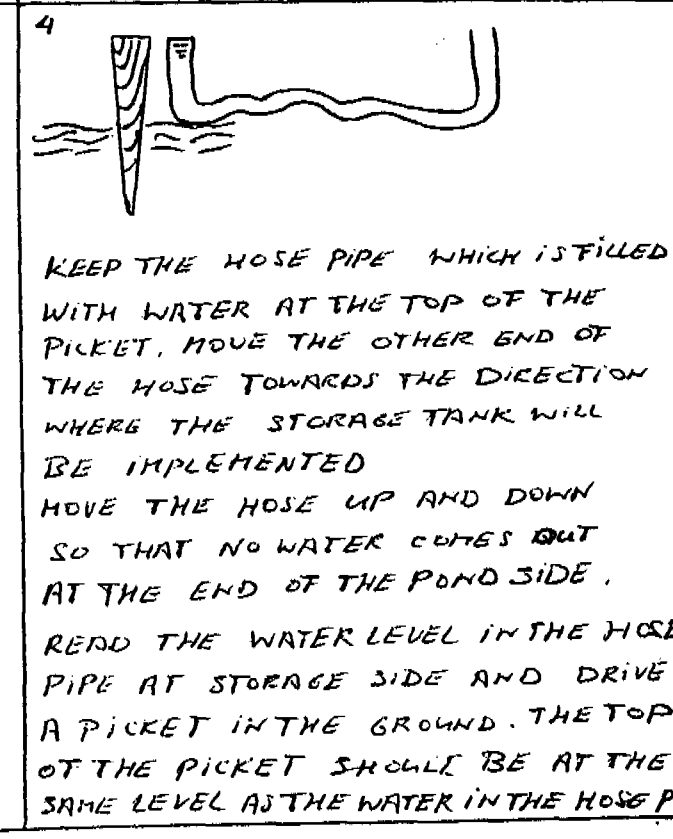 4
KEEP THE HOSE PIPE WHICH iS FiLLED
WiTH WATER AT THE TOP OF THE
PiCKET. MOVE THE OTHER END OF
THE HOSE TOWARDS THE DiRECTiON
WHERE THE STORAGE TANK WiLL
BE iMPLEMENTED
MOVE THE HOSE UP AND DOWN
SO THAT NO WATER COMES OUT
AT THE END OF THE POND SiDE.
READ THE WATER LEVEL iN THE HOSE
PiPE AT STORAGE SiDE AND DRiVE
A PiCKET iN THE GROUND. THE TOP
OT THE PiCKET SHOULD BE AT THE
SAME LEVEL AS THE WATER iN THE HOSE P